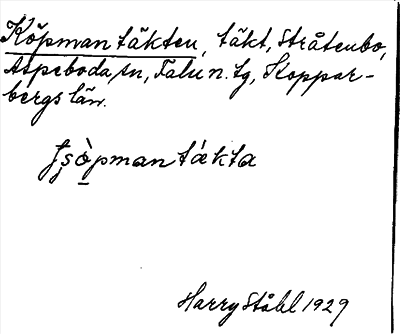 Köpmantäkten, täkt, Stråtenbo,
Aspeboda sn, Falu n. tg, Koppar-
bergs län.
tʂòpmantákta
Harry Ståhl 1929